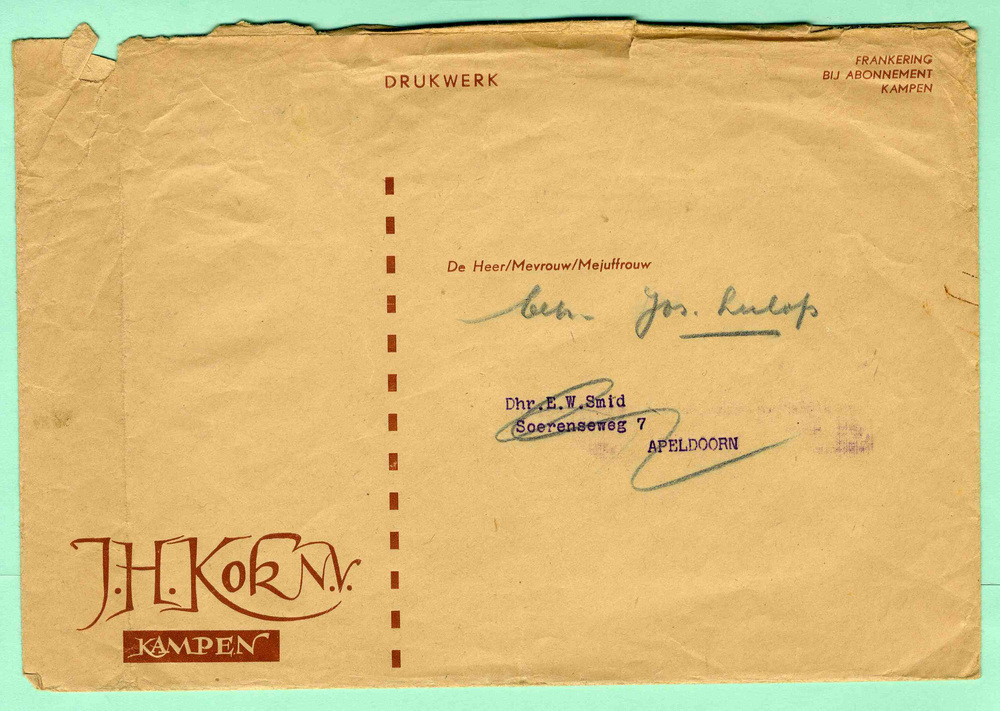 DRUKWERK
FRANKERING
BIJ ABONNEMENT
KAMPEN
De Heer/Mevrouw/Mejuffrouw
Jos.
Dhr.E.W.Smid
Soerenseweg 7
APELDOORN
J.H.Kok N.V.
KAMPEN